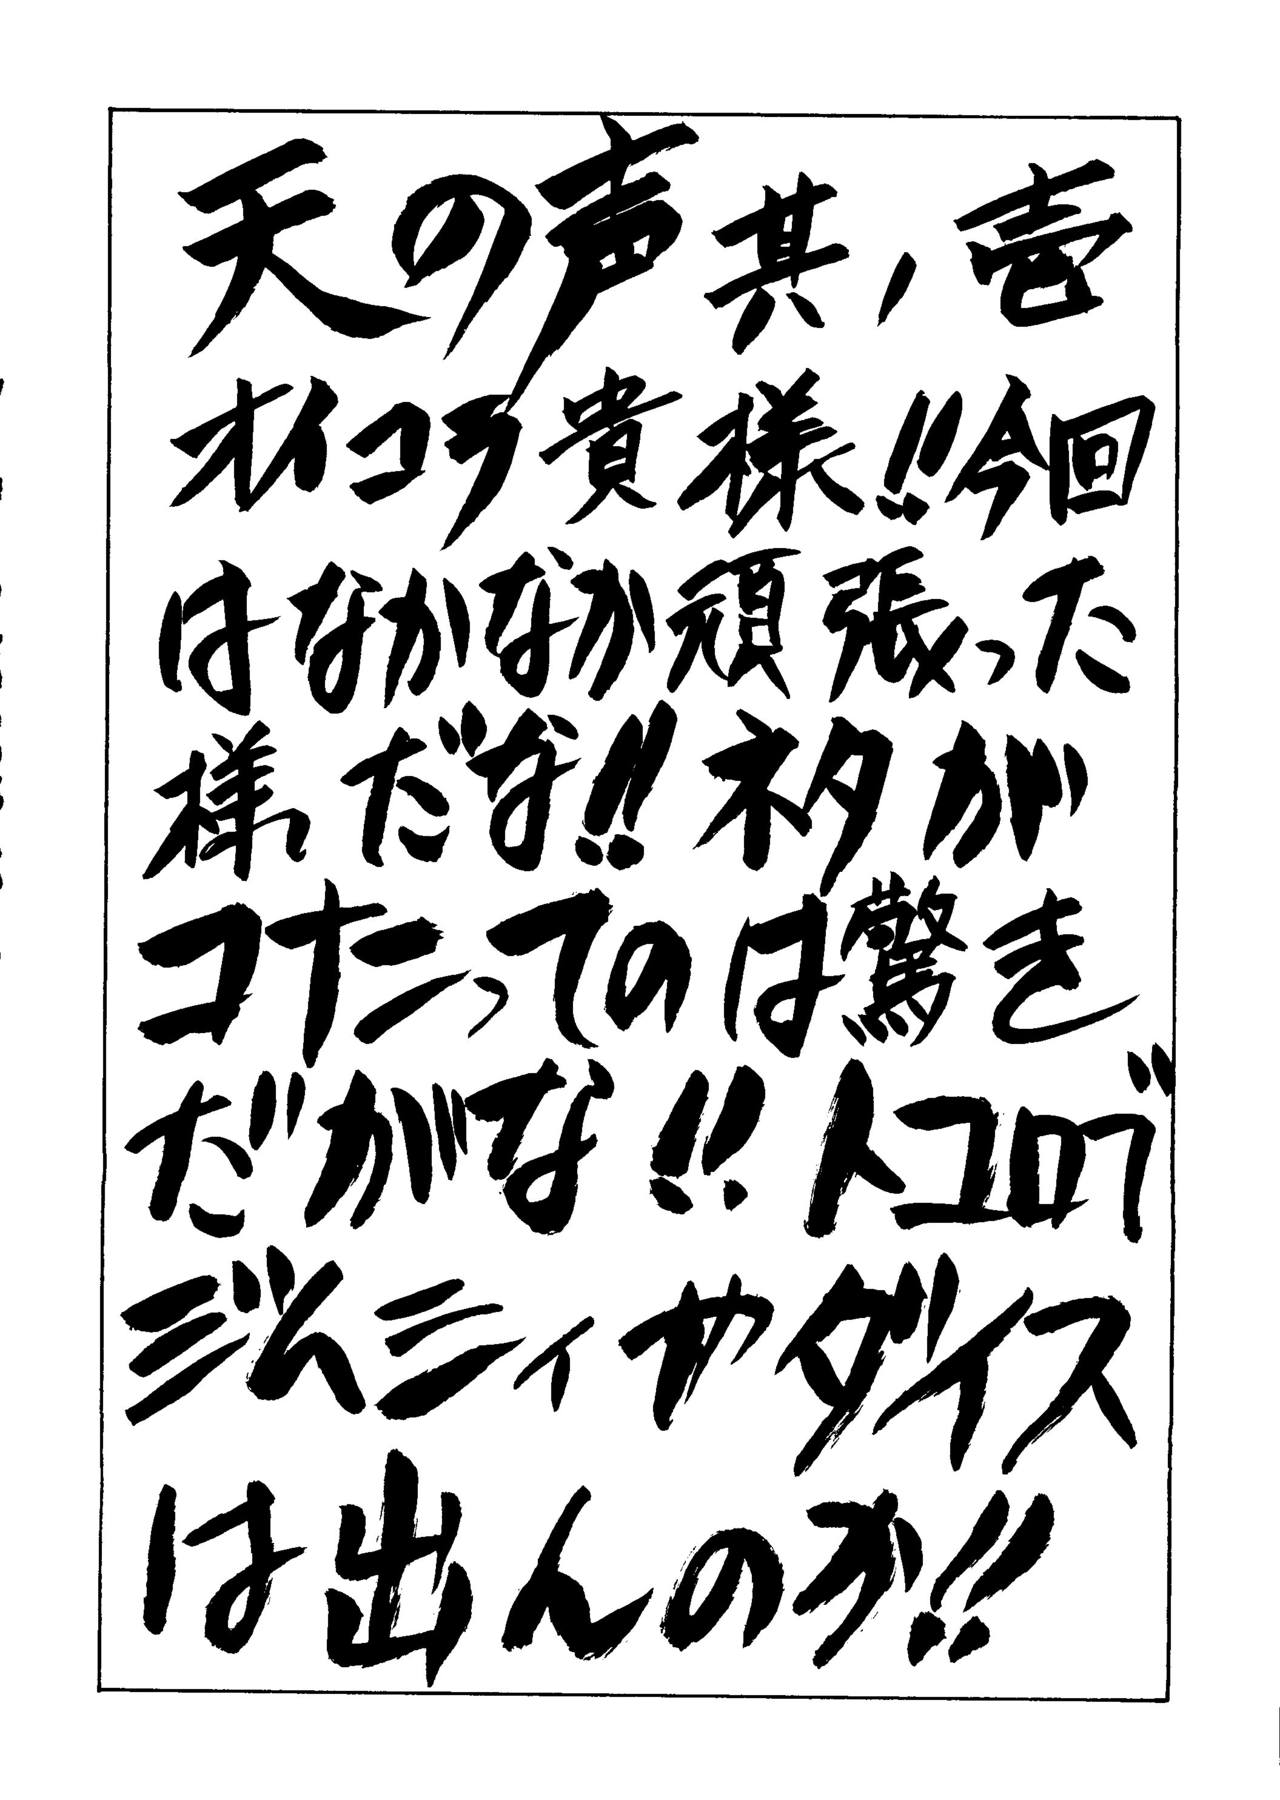 天の声其ノ壱
オイコラ貴様!!今回
はなかなか頑張った
様だな!!ネタが
コナこってのは驚き
だがな!!トコロで
ジムニィやダイス
は出んのか!!